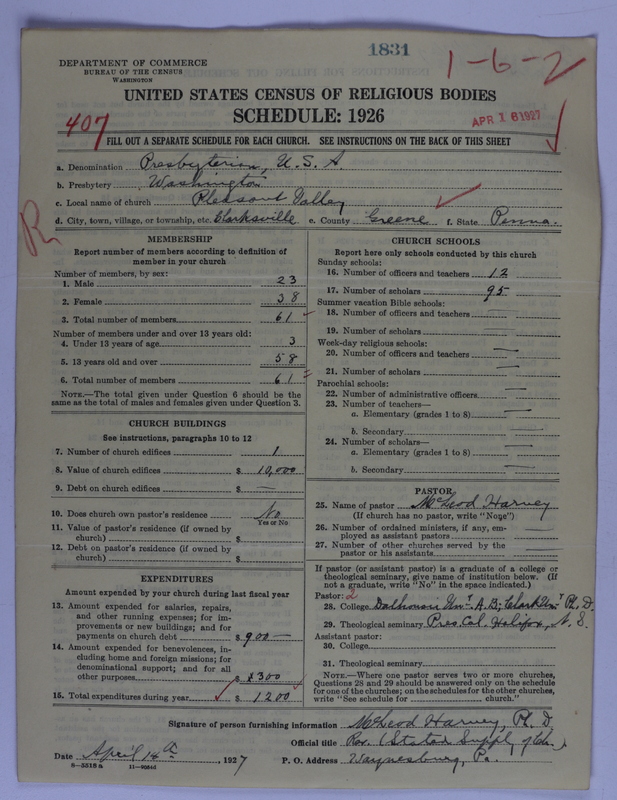 1831
1-6-2
DEPARTMENT OF COMMERCE
BUREAU OF THE CENSUS
WASHINGTON
UNITED STATES CENSUS OF RELIGIOUS BODIES
SCHEDULE: 1926
APR 16 1927
407
FILL OUT A SEPARATE SCHEDULE FOR EACH CHURCH. SEE INSTRUCTIONS ON THE BACK OF THIS SHEET
a. Denomination Presbyterian, U. S. A.
b. Presbytery Washington
c. Local name of church Pleasant Valley
d. City, town, village, or township, etc. Clarksville e. County Greene f. State Penna.
R
MEMBERSHIP
Report number of members according to definition of
member in your church
Number of members, by sex:
1. Male 23
2. Female 38
3. Total number of members 61
Number of members under and over 13 years old:
4. Under 13 years of age 3
5. 13 years old and over 58
6. Total number of members 61
NOTE.—The total given under Question 6 should be
same as the total of males and females given under Question 3.
CHURCH BUILDINGS
See instructions, paragraphs 10 to 12
7. Number of church edifices 1
8. Value of church edifices $ 10,000
9. Debt on church edifices $ —
10. Does church own pastor's residence No
Yes or No
11. Value of pastor's residence (if owned by
church) $
12. Debt on pastor's residence (if owned by
church) $
EXPENDITURES
Amount expended by your church during last fiscal year
13. Amount expended for salaries, repairs,
and other running expenses; for im-
provements or new buildings; and for
payments on church debt $ 900 —
14. Amount expended for benevolences, in-
cluding home and foreign missions; for
denominational support; and for all
other purposes $ 300
15. Total expenditures during year $ 1200
CHURCH SCHOOLS
Report here only schools conducted by this church
Sunday schools:
16. Number of officers and teachers 12
17. Number of scholars 95
Summer vacation Bible schools:
18. Number of officers and teachers —
19. Number of scholars —
Week-day religious schools:
20. Number of officers and teachers —
21. Number of scholars —
Parochial schools:
22. Number of administrative officers —
23. Number of teachers—
a. Elementary (grades 1 to 8) —
b. Secondary —
24. Number of scholars—
a. Elementary (grades 1 to 8) —
b. Secondary —
PASTOR
25. Name of pastor McLeod Harvey
(If church has no pastor, write "None")
26. Number of ordained ministers, if any, em-
ployed as assistant pastors —
27. Number of other churches served by the
pastor or his assistants —
If pastor (or assistant pastor) is a graduate of a college or
theological seminary, give name of institution below. (If
not a graduate, write "No" in the space indicated.)
Pastor: 2
28. College Dalhousie Unt. A.B; Clark Unt Ph. D.
29. Theological seminary Pres. Col. Halifax, N. S.
Assistant pastor:
30. College
31. Theological seminary
NOTE.—Where one pastor serves two or more churches,
Questions 28 and 29 should be answered only on the schedule
for one of the churches; on the schedules for the other churches,
write "See schedule for church."
Signature of person furnishing information McLeod Harvey, Ph. D
Official title Rev. (Stated Supply of Ch.)
Date April 14th, 1927 P. O. Address Waynesburg, Pa.
8—5518 a